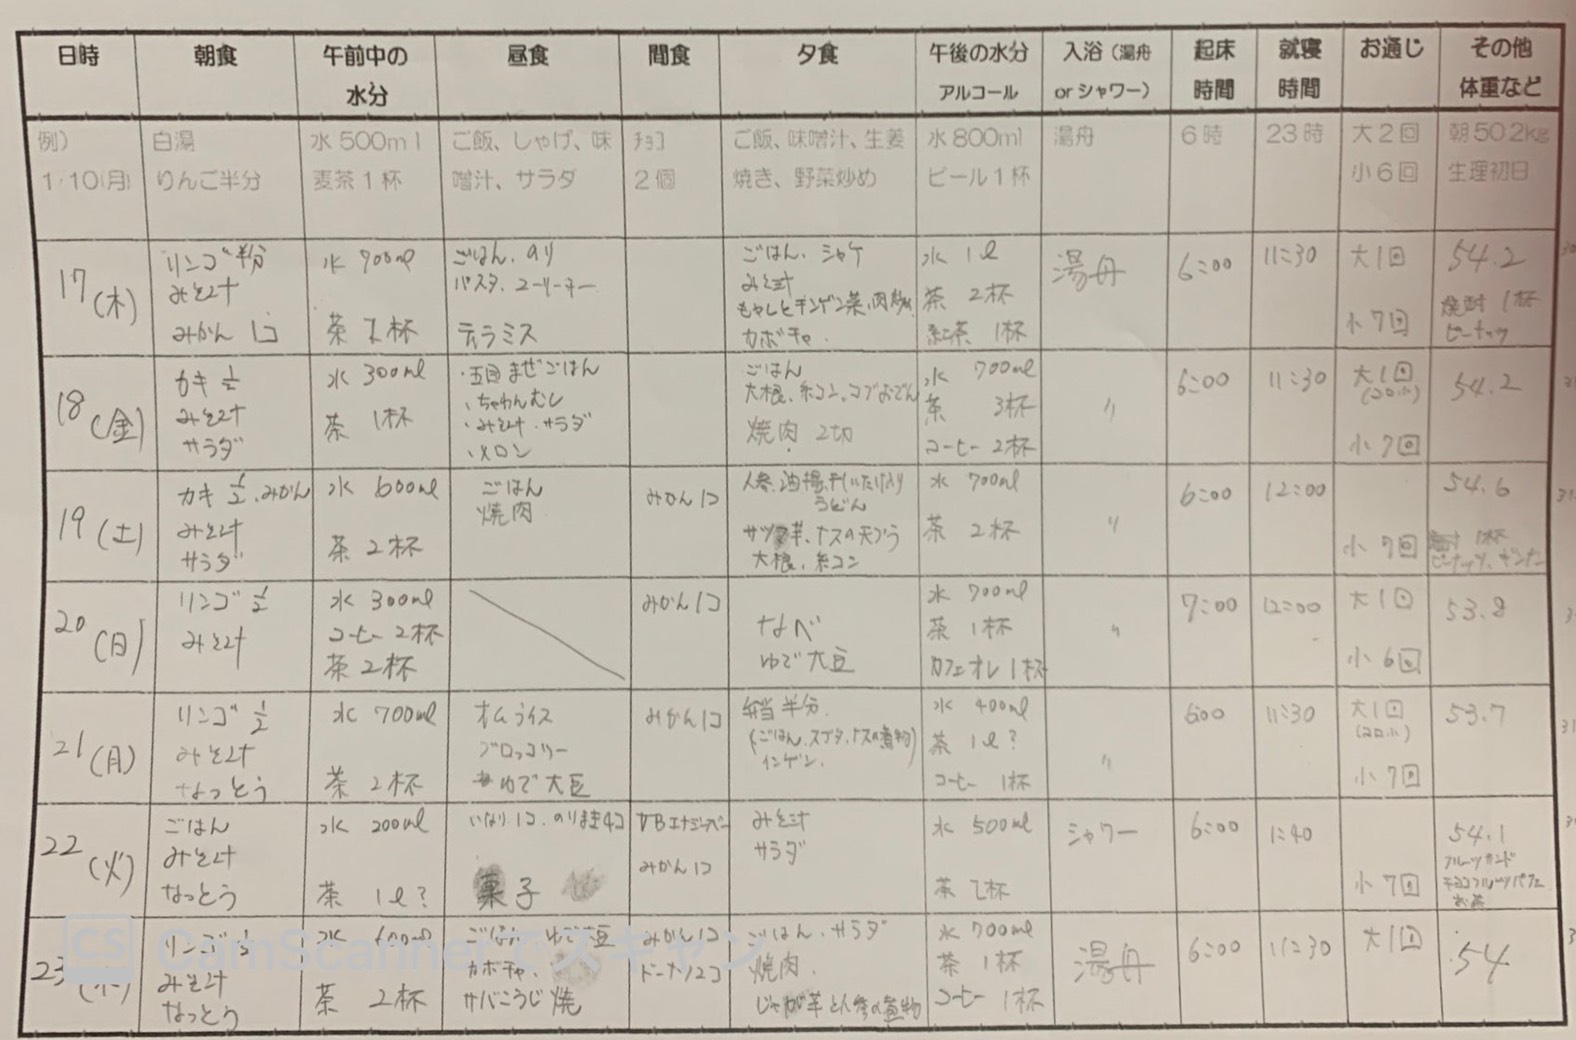 日時 朝食 午前中の水分 昼食 間食 夕食 午後の水分 アルコール 入浴（湯舟 or シャワー） 起床時間 就寝時間 お通じ その他 体重など
例） 白湯 水500ml ご飯、しゃけ、味 チョコ ご飯、味噌汁、生姜 水800ml 湯舟 6時 23時 大2回 朝50.2kg
1/10(月) りんご半分 麦茶1杯 噌汁、サラダ 2個 焼き、野菜炒め ビール1杯 小6回 生理初日
17(木) リンゴ半分 水 900ml ごはん、のり ごはん、シャケ 水 1ℓ 湯舟 6:00 11:30 大1回 54.2
みそ汁 パスタ、コーヒー みそ汁 茶 2杯 焼酎 1杯
もやしとチンゲン菜、肉炒め
みかん 1コ 茶 1杯 ティラミス カボチャ 紅茶 1杯 小7回 ピーナッツ
18(金) カキ 1/2 水 300ml ・五目まぜごはん ごはん 水 700ml 〃 6:00 11:30 大1回 54.2
みそ汁 茶 1杯 ・ちゃわんむし 大根、糸コン、コブおでん 茶 3杯 (コロコロ)
サラダ ・みそ汁・サラダ 焼肉 2切 コーヒー 2杯 小7回
・メロン
19(土) カキ 1/2、みかん 水 600ml ごはん みかん1コ 人参、油揚、干しいたけ入り 水 700ml 〃 6:00 12:00 54.6
みそ汁 焼肉 うどん
サラダ 茶 2杯 サツマ芋、ナスの天ぷら 茶 2杯 小7回 1杯
大根、糸コン ピーナッツ、ギンナン
20(日) リンゴ 1/2 水 300ml みかん1コ なべ 水 700ml 〃 7:00 12:00 大1回 53.8
みそ汁 コーヒー 2杯 ゆで大豆 茶 1杯
茶 2杯 カフェオレ 1杯 小6回
21(月) リンゴ 1/2 水 700ml オムライス みかん1コ 弁当半分 水 400ml 〃 6:00 11:30 大1回 53.7
みそ汁 ブロッコリー (ごはん、スブタ、ナスの煮物) 茶 1ℓ?
なっとう 茶 2杯 ゆで大豆 インゲン コーヒー 1杯 小7回
22(火) ごはん 水 200ml いなり1コ、のりまき4コ みかん1コ みそ汁 水 500ml シャワー 6:00 1:40 54.1
みそ汁 サラダ フルーツサンド
なっとう 茶 1ℓ? 菓子 茶 小7回 チョコフルーツパフェ
お茶
23 リンゴ 1/2 水 600ml ごはん ゆで大豆 みかん1コ ごはん・サラダ 水 700ml 湯舟 6:00 11:30 大1回 54
みそ汁 カボチャ、 ドーナツ2コ 焼肉 茶 1杯
なっとう 茶 2杯 サバこうじ焼 じゃが芋と人参の煮物 コーヒー 1杯
CS CamScannerでスキャン